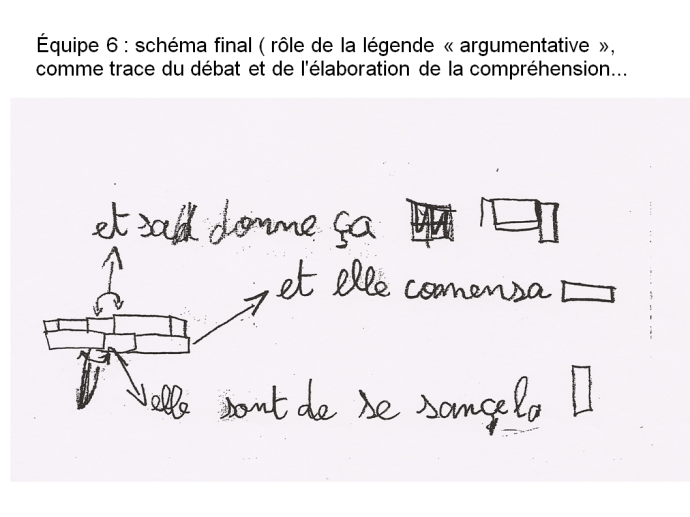 Équipe 6 : schéma final ( rôle de la légende « argumentative »,
comme trace du débat et de l'élaboration de la compréhension...
et sa donne ça
et elle comensa
elle sont de se sangela